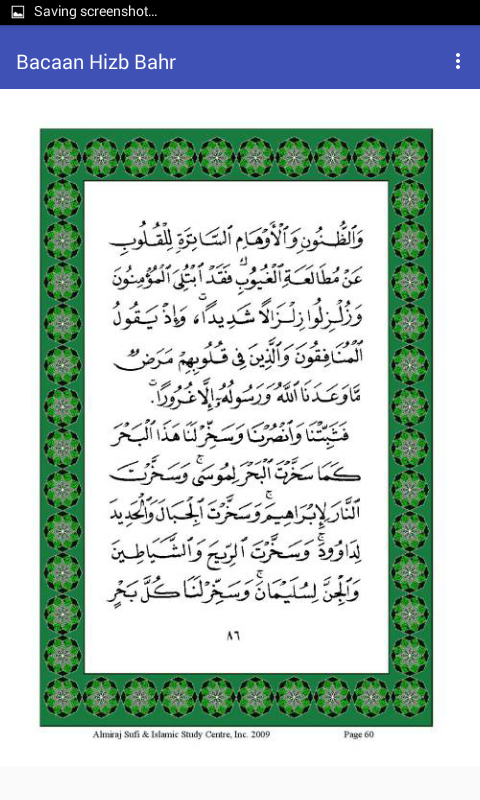 Saving screenshot...
Bacaan Hizb Bahr
وَٱلظُّنُونِ وَٱلْأَوْهَامِ ٱلسَّاتِرَةِ لِلْقُلُوبِ
عَنْ مُطَالَعَةِ ٱلْغُيُوبِ فَقَدِ ٱبْتُلِيَ ٱلْمُؤْمِنُونَ
وَزُلْزِلُوا زِلْزَالًا شَدِيدًا، وَإِذْ يَقُولُ
ٱلْمُنَافِقُونَ وَٱلَّذِينَ فِي قُلُوبِهِمْ مَرَضٌ
مَّا وَعَدَنَا ٱللَّهُ وَرَسُولُهُ إِلَّا غُرُورًا.
فَثَبِّتْنَا وَٱنْصُرْنَا وَسَخِّرْ لَنَا هَذَا ٱلْبَحْرَ
كَمَا سَخَّرْتَ ٱلْبَحْرَ لِمُوسَى وَسَخَّرْتَ
ٱلنَّارَ لِإِبْرَاهِيمَ وَسَخَّرْتَ ٱلْجِبَالَ وَٱلْحَدِيدَ
لِدَاوُودَ وَسَخَّرْتَ ٱلرِّيحَ وَٱلشَّيَاطِينَ
وَٱلْجِنَّ لِسُلَيْمَانَ وَسَخِّرْ لَنَا كُلَّ بَحْرٍ
٨٦
Almiraj Sufi & Islamic Study Centre, Inc. 2009 Page 60